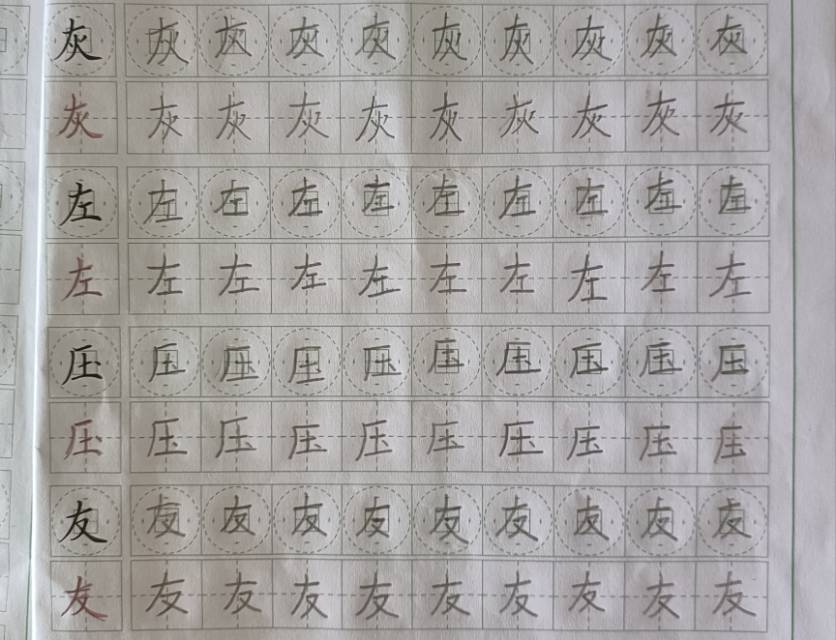 灰灰灰灰灰灰灰灰灰灰
灰灰灰灰灰灰灰灰灰灰
左左左左左左左左左左
左左左左左左左左左左
压压压压压压压压压压
压压压压压压压压压压
友友友友友友友友友友
友友友友友友友友友友